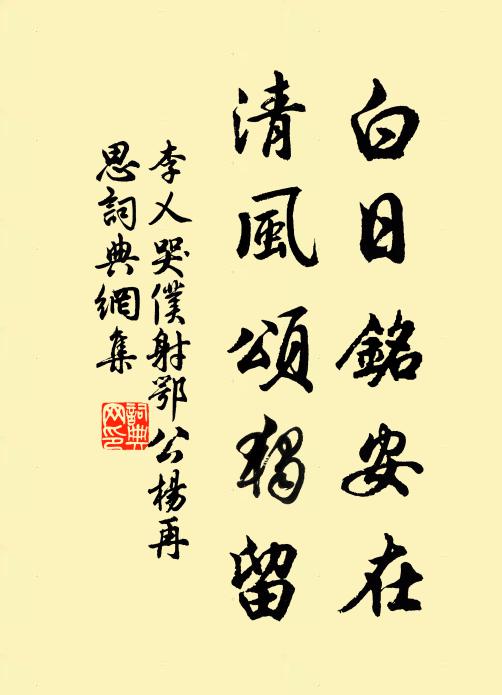 白日銘安在
清風頌獨留
李乂哭僕射鄂公楊再
思詞典網集
詞典
网印